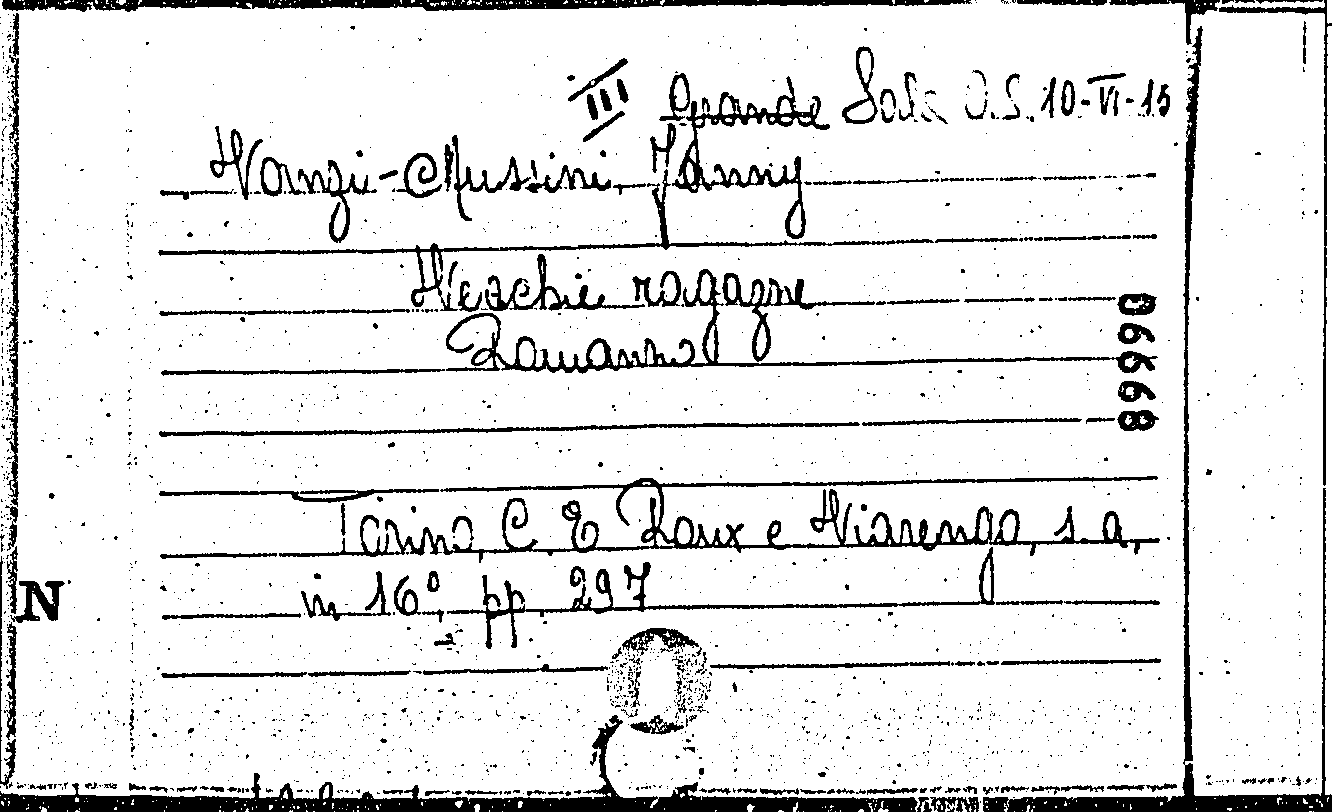 III Grande Sala D.S. 10-VI-15
Vanzi-Mussini, Fanny
Vecchie ragazze
Romanzo
Torino, C. E Roux e Viarengo, s. a,
in 16°, pp. 297
N